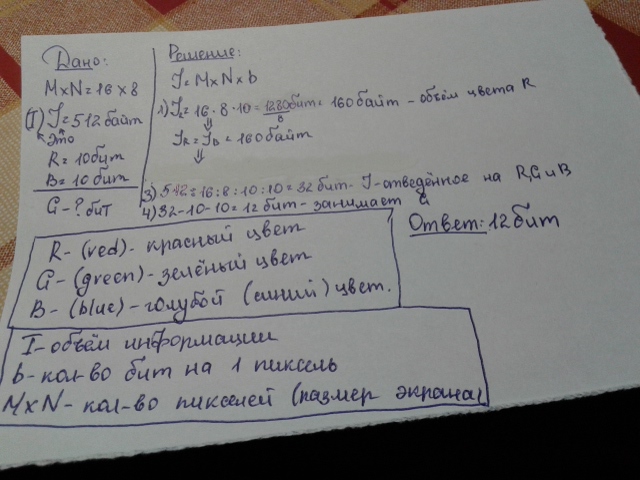 Дано:
M×N=16×8
(I) I=512 байт
это
R=10бит
B=10 бит
G-? бит
Решение:
I=M×N×b
1) I_R=16·8·10=1280бит/8=160байт - объём цвета R
⇓
I_R=I_B=160байт
⇓
3) 512=16:8:10:10=32 бит- I-отведённое на R,G и B
4) 32-10-10=12 бит- занимает G
Ответ: 12 бит
R- (red)- красный цвет
G- (green)- зелёный цвет
B- (blue)- голубой (синий) цвет.
I- объём информации
b- кол-во бит на 1 пиксель
M×N- кол-во пикселей (размер экрана)